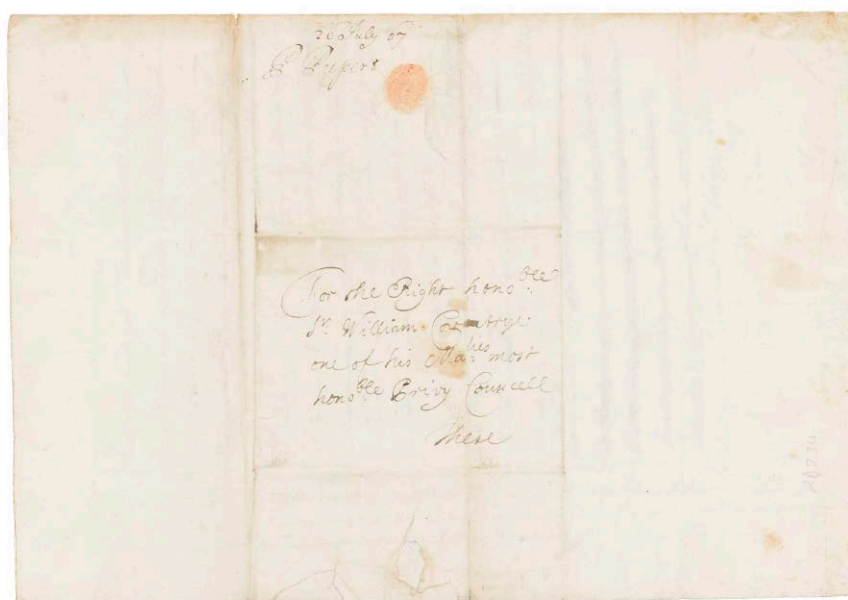 26 July 67
For the Right hono:ble
Sr. William Coventrye
one of his Ma:ties most
hono:ble Privy Councell
These